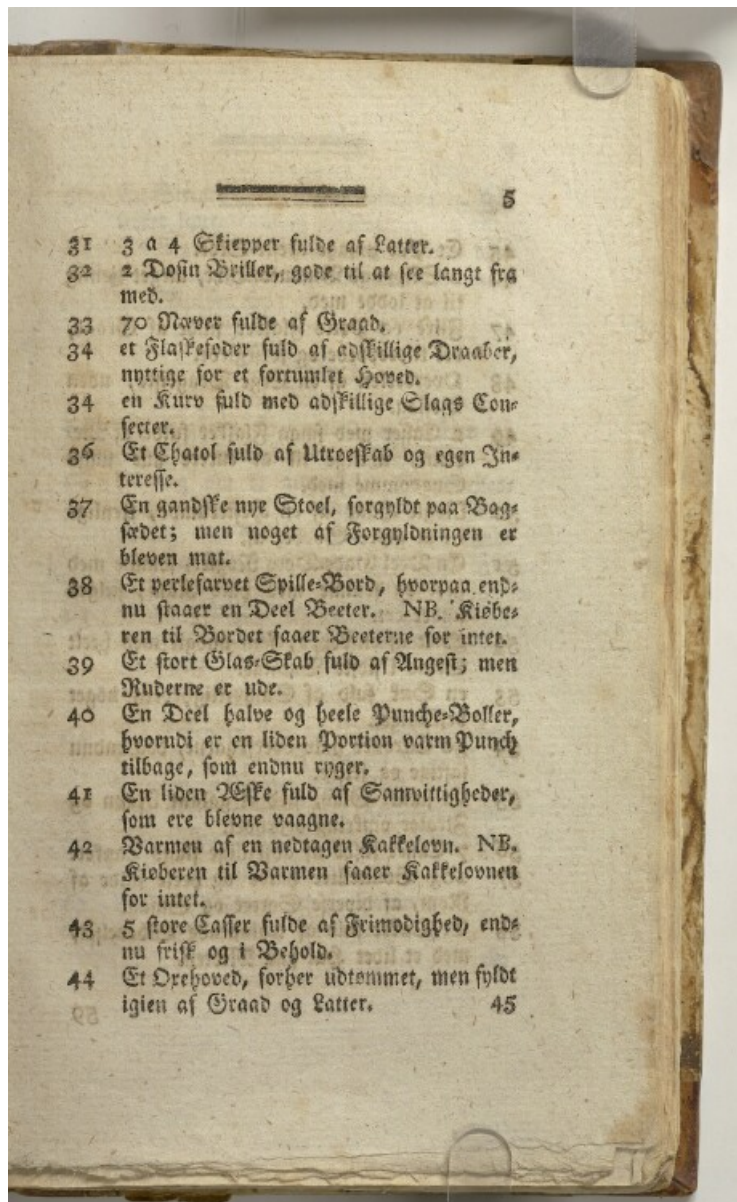 5
31 3 a 4 Skiepper fulde af Latter.
32 2 Dosin Briller, gode til at see langt fra
med.
33 70 Næver fulde af Graad.
34 et Flaskefoder fuld af adskillige Draaber,
nyttige for et fortumlet Hoved.
34 en Kurv fuld med adskillige Slags Con-
fecter.
36 Et Chatol fuld af Utroeskab og egen In-
teresse.
37 En gandske nye Stoel, forgyldt paa Bag-
sædet; men noget af Forgyldningen er
bleven mat.
38 Et perlefarvet Spille-Bord, hvorpaa end-
nu staaer en Deel Beeter. NB. Kiøbe-
ren til Bordet faaer Beeterne for intet.
39 Et stort Glas-Skab fuld af Angest; men
Ruderne er ude.
40 En Deel halve og heele Punche-Boller,
hvorudi er en liden Portion varm Punch
tilbage, som endnu ryger.
41 En liden Æske fuld af Samvittigheder,
som ere blevne vaagne.
42 Varmen af en nedtagen Kakkelovn. NB.
Kiøberen til Varmen faaer Kakkelovnen
for intet.
43 5 store Casser fulde af Frimodighed, end-
nu frisk og i Behold.
44 Et Oxehoved, forher udtømmet, men fyldt
igien af Graad og Latter. 45